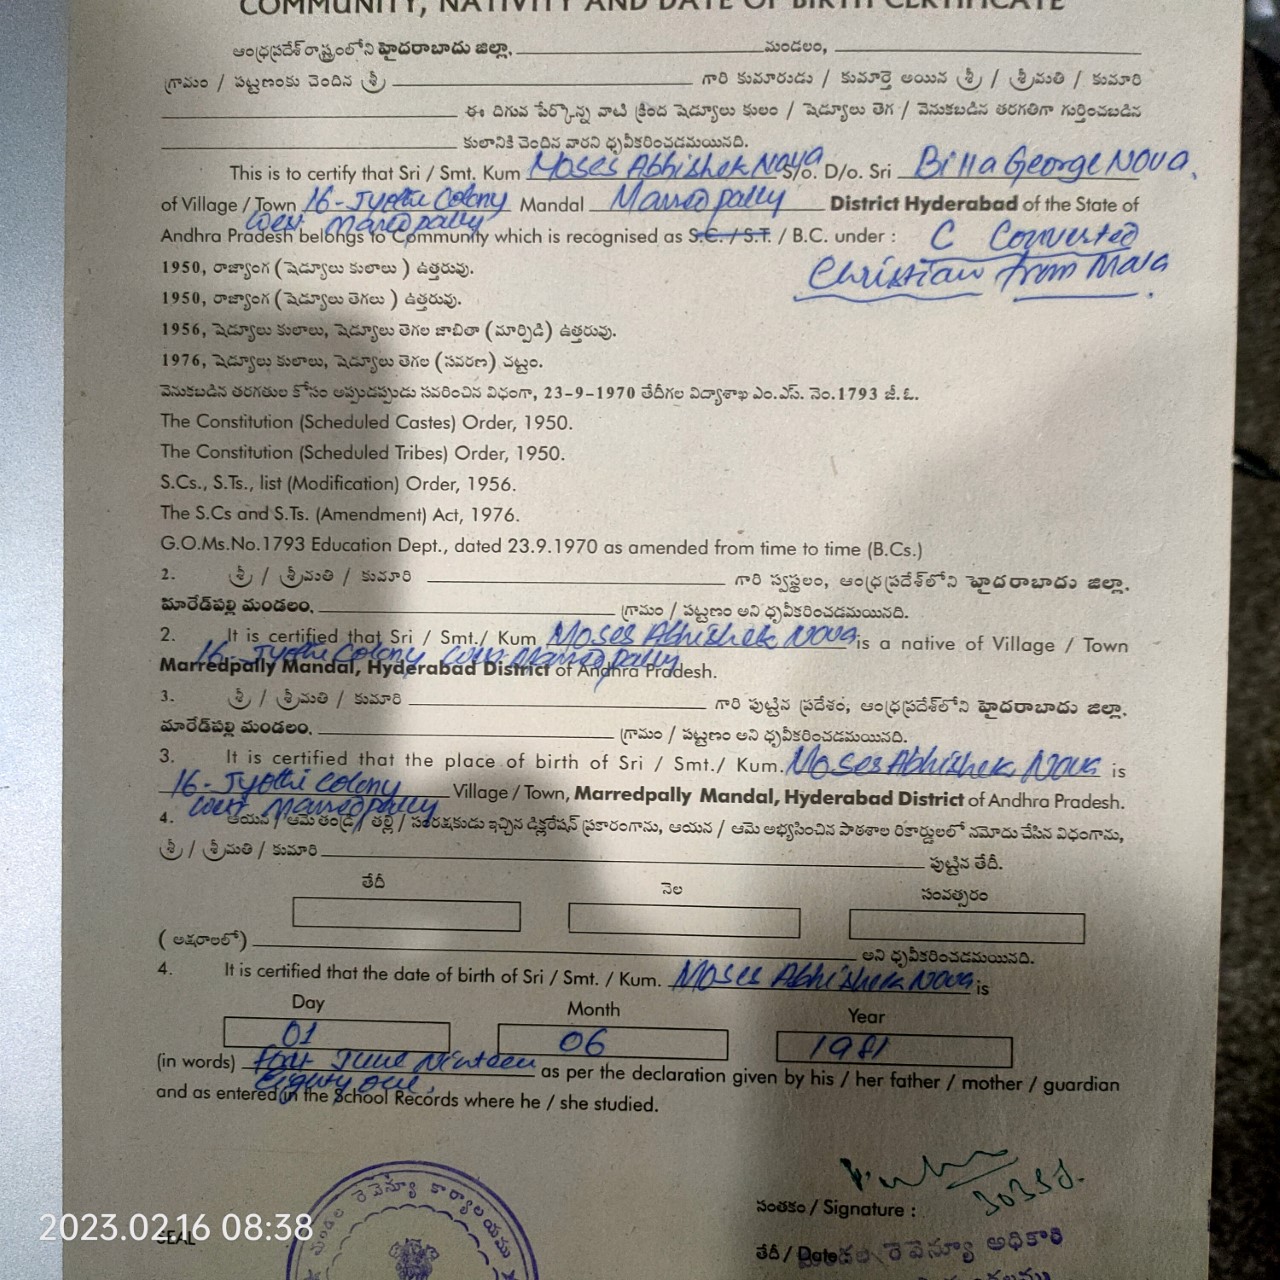 COMMUNITY, NATIVITY AND DATE OF BIRTH CERTIFICATE
ఆంధ్రప్రదేశ్ రాష్ట్రంలోని హైదరాబాదు జిల్లా, మండలం,
గ్రామం / పట్టణంకు చెందిన శ్రీ గారి కుమారుడు / కుమార్తె అయిన శ్రీ / శ్రీమతి / కుమారి
ఈ దిగువ పేర్కొన్న వాటి క్రింద షెడ్యూలు కులం / షెడ్యూలు తెగ / వెనుకబడిన తరగతిగా గుర్తించబడిన
కులానికి చెందిన వారని ధృవీకరించడమయినది.
This is to certify that Sri / Smt. Kum Moses Abhishek Nova S/o. D/o. Sri Billa George NOVA,
of Village / Town 16 - Jyothi Colony Mandal Marredpally District Hyderabad of the State of
West Marredpally
Andhra Pradesh belongs to Community which is recognised as S.C. / S.T. / B.C. under : C Converted
Christian from Mala
1950, రాజ్యాంగ (షెడ్యూలు కులాలు) ఉత్తరువు.
1950, రాజ్యాంగ (షెడ్యూలు తెగలు) ఉత్తరువు.
1956, షెడ్యూలు కులాలు, షెడ్యూలు తెగల జాబితా (మార్పిడి) ఉత్తరువు.
1976, షెడ్యూలు కులాలు, షెడ్యూలు తెగల (సవరణ) చట్టం.
వెనుకబడిన తరగతుల కోసం అప్పుడప్పుడు సవరించిన విధంగా, 23-9-1970 తేదీగల విద్యాశాఖ ఎం.ఎస్. నెం.1793 జీ.ఓ.
The Constitution (Scheduled Castes) Order, 1950.
The Constitution (Scheduled Tribes) Order, 1950.
S.Cs., S.Ts., list (Modification) Order, 1956.
The S.Cs and S.Ts. (Amendment) Act, 1976.
G.O.Ms.No.1793 Education Dept., dated 23.9.1970 as amended from time to time (B.Cs.)
2. శ్రీ / శ్రీమతి / కుమారి గారి స్వస్థలం, ఆంధ్రప్రదేశ్‌లోని హైదరాబాదు జిల్లా.
మారేడ్‌పల్లి మండలం, గ్రామం / పట్టణం అని ధృవీకరించడమయినది.
2. It is certified that Sri / Smt./ Kum Moses Abhishek NOVA is a native of Village / Town
16 - Jyothi Colony West Marredpally
Marredpally Mandal, Hyderabad District of Andhra Pradesh.
3. శ్రీ / శ్రీమతి / కుమారి గారి పుట్టిన ప్రదేశం, ఆంధ్రప్రదేశ్‌లోని హైదరాబాదు జిల్లా.
మారేడ్‌పల్లి మండలం, గ్రామం / పట్టణం అని ధృవీకరించడమయినది.
3. It is certified that the place of birth of Sri / Smt./ Kum. Moses Abhishek Nova is
16 - Jyothi Colony Village / Town, Marredpally Mandal, Hyderabad District of Andhra Pradesh.
West Marredpally
4. ఆయన / ఆమె తండ్రి / తల్లి / సంరక్షకుడు ఇచ్చిన డిక్లరేషన్ ప్రకారంగాను, ఆయన / ఆమె అభ్యసించిన పాఠశాల రికార్డులలో నమోదు చేసిన విధంగాను,
శ్రీ / శ్రీమతి / కుమారి పుట్టిన తేదీ.
తేదీ నెల సంవత్సరం
(అక్షరాలలో) అని ధృవీకరించడమయినది.
4. It is certified that the date of birth of Sri / Smt. / Kum. Moses Abhishek Nova is
Day Month Year
01 06 1981
(in words) June Ninteen as per the declaration given by his / her father / mother / guardian
Eighty one,
and as entered in the School Records where he / she studied.
మండల రెవెన్యూ కార్యాలయము
సంతకం / Signature :
SEAL
తేదీ / Date
మండల రెవెన్యూ అధికారి
2023.02.16 08:38